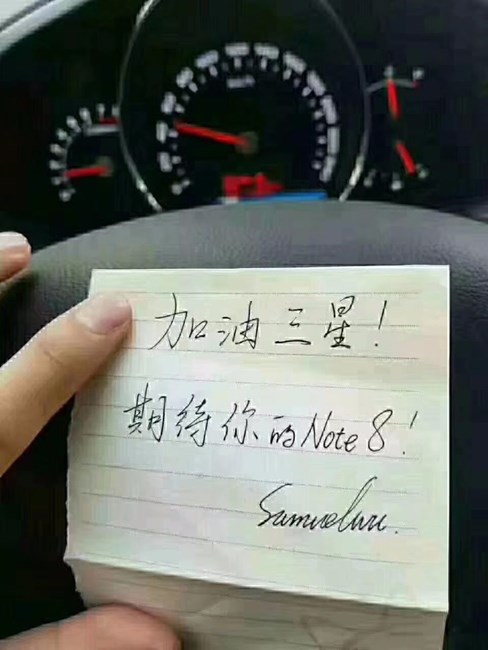 加油三星！
期待你的Note 8！